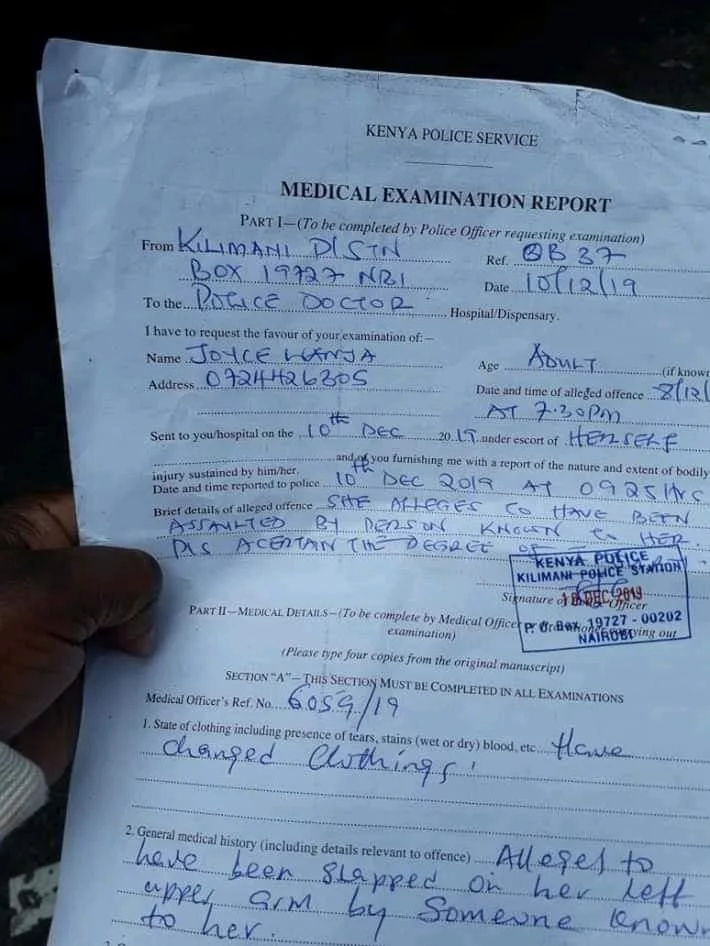 KENYA POLICE SERVICE
MEDICAL EXAMINATION REPORT
PART I—(To be completed by Police Officer requesting examination)
From KILIMANI DISTN Ref. OB 37
BOX 19727 NBI Date 10/12/19
To the POLICE DOCTOR Hospital/Dispensary.
I have to request the favour of your examination of:—
Name JOYCE WANJA Age ADULT (if known
Address 0724426305 Date and time of alleged offence 8/12/
AT 7.30PM
Sent to you/hospital on the 10th DEC 2019 under escort of HERSELF
and of you furnishing me with a report of the nature and extent of bodily
injury sustained by him/her.
Date and time reported to police 10th DEC 2019 AT 0925Hrs
Brief details of alleged offence SHE ALLEGES TO HAVE BEEN
ASSAULTED BY PERSON KNOWN TO HER.
PLS ACERTAIN THE DEGREE OF
KENYA POLICE
KILIMANI POLICE STATION
Signature of Officer
DEC 2019
P. O. Box 19727 - 00202
NAIROBI
PART II—MEDICAL DETAILS—(To be complete by Medical Officer carrying out
examination)
(Please type four copies from the original manuscript)
SECTION "A"—THIS SECTION MUST BE COMPLETED IN ALL EXAMINATIONS
Medical Officer's Ref. No. 6059/19
1. State of clothing including presence of tears, stains (wet or dry) blood, etc. Have
changed Clothings'
2. General medical history (including details relevant to offence) Alleges to
have been slapped on her left
upper arm by Someone known
to her.